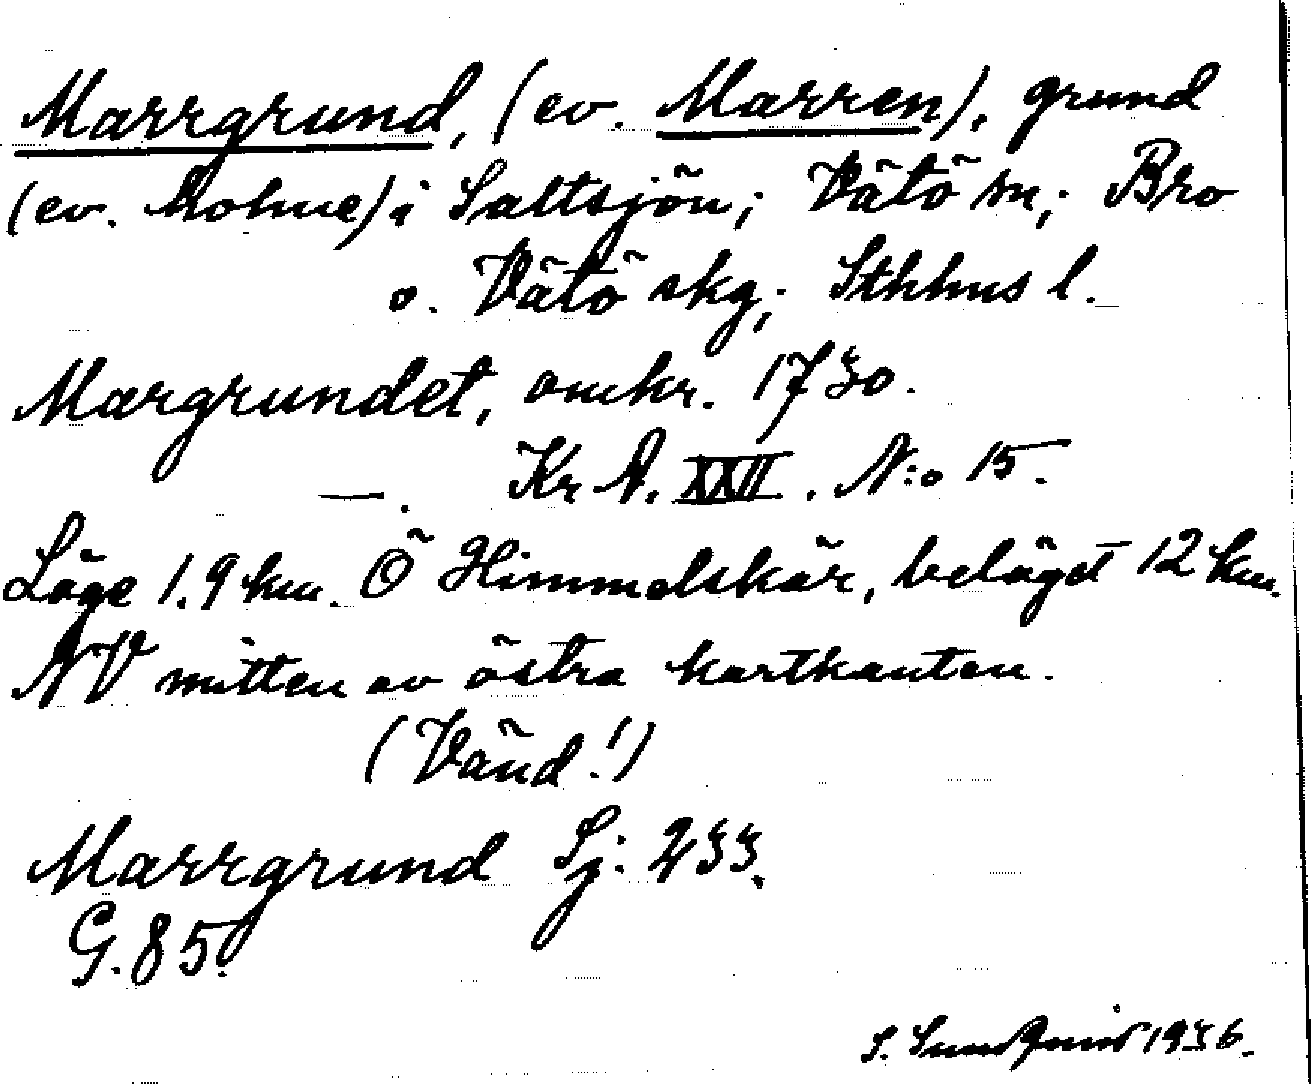 Marrgrund, (ev. Marren), grund
(ev. holme) i Saltsjön; Vätö sn; Bro
o. Vätö skg; Sthlms l.
Margrundet, omkr. 1730.
—. Kr A. XXII. N:o 15.
Läge 1.9 km. Ö Himmelskär, beläget 12 km.
NV mitten av östra kartkanten.
(Vänd!)
Marrgrund Sj: 233.
G. 85.
S. Sundquist 1936.